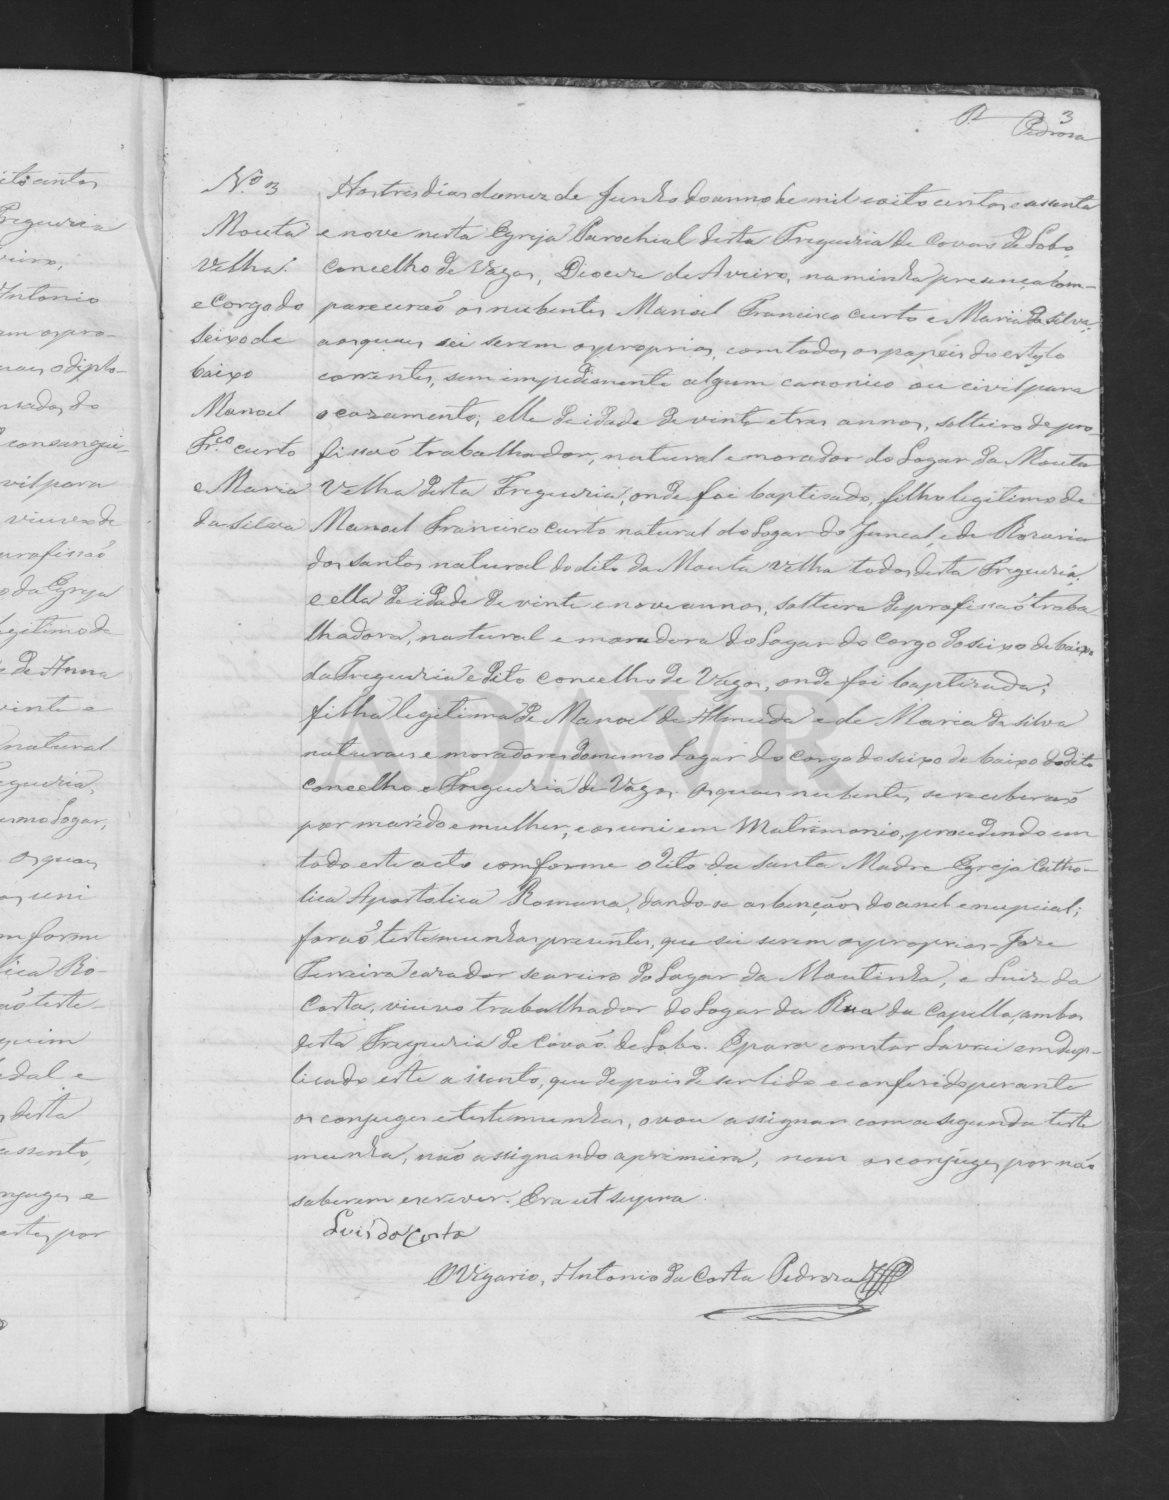 3
Pedroza
Nº 3
Mouta
Velha.
e Corgo do
seixo de
baixo
Manoel
Fr.co curto
e Maria
da Silva
Aos tres dias do mez de Junho do anno de mil e oito centos e assenta
e nove nesta Egreja Parochial desta Freguezia de Covaõ de Lobo,
concelho de Vagos, Diocese de Aveiro, na minha presença com-
pareceraõ os nubentes Manoel Francisco Curto e Maria da Silva,
aos quaes sei serem os proprios, com todos os papeis do estylo
correntes, sem impedimento algum canonico ou civil para
o cazamento; elle de idade de vinte e tres annos, solteiro de pro-
fissaõ trabalhador, natural e morador do Logar da Mouta
Velha desta Freguezia, onde foi baptisado, filho legitimo de
Manoel Francisco Curto natural do Logar do Juncal, e de Rozaria
dos santos natural do dito da Mouta Velha todos desta Freguezia;
e ella de idade de vinte e nove annos, solteira de profissaõ traba
lhadora, natural e moradora do Logar do Corgo do seixo de baixo
da Freguezia e dito concelho de Vagos, onde foi baptizada;
filha legitima de Manoel de Almeida e de Maria da silva
naturaes e moradores do mesmo Logar do Corgo do seixo de baixo do dito
concelho e Freguezia de Vagos. os quaes nubentes se receberaõ
por marido e mulher, e os uni em Matrimonio, procedendo em
todo este acto comforme o Rito da santa Madre Egreja Catho-
lica Apostolica Romana, dando-se as bençaõs do anel e nupcial;
foraõ testemunhas presentes, que sei serem os proprios - Joze
Ferreira cazador seareiro do Logar da Moutinha, e Luiz da
Costa, viuvo trabalhador do Logar da Rua da Capella, ambos
desta Freguezia de Covaõ de Lobo. E para constar lavrei em dup-
licado este assento, que depois de ser lido e conferido perante
os conjuges e testemunhas, o vou assignar com a segunda teste
munha, naõ assignando a primeira, nem os conjuges por naõ
saberem escrever. Era ut supra.
Luis da Costa
O Vigario, Antonio da Costa Pedroza
ADAVR